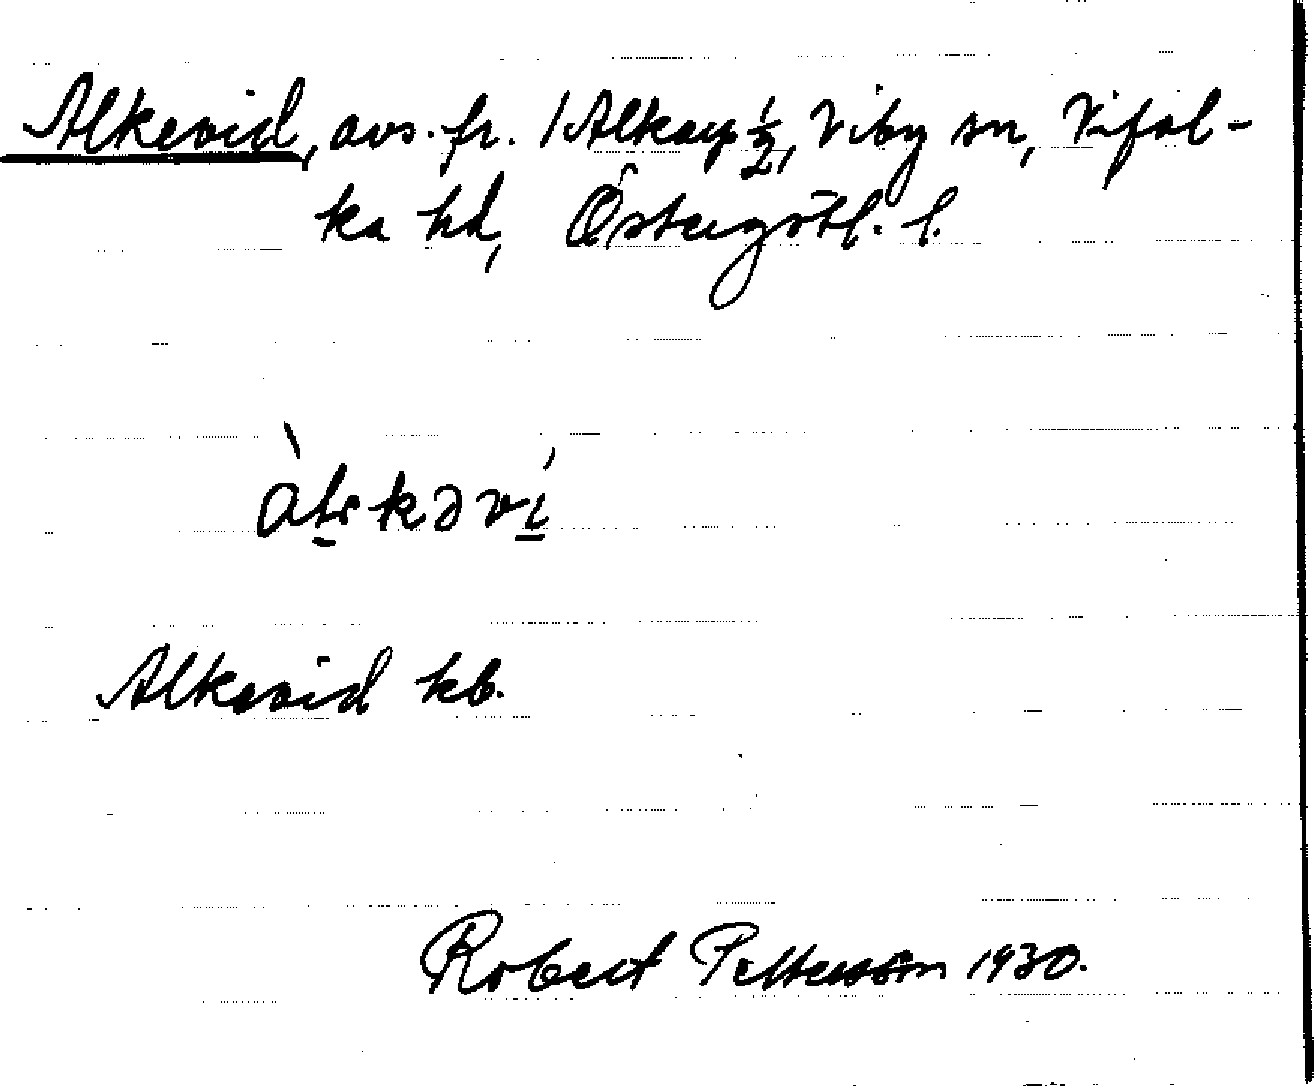 Alkevid, avs. fr. /Alkarp ½, Viby sn, Vifol-
ka hd, Östergötl. l.
Alkevid kb.
Robert Pettersson 1930.